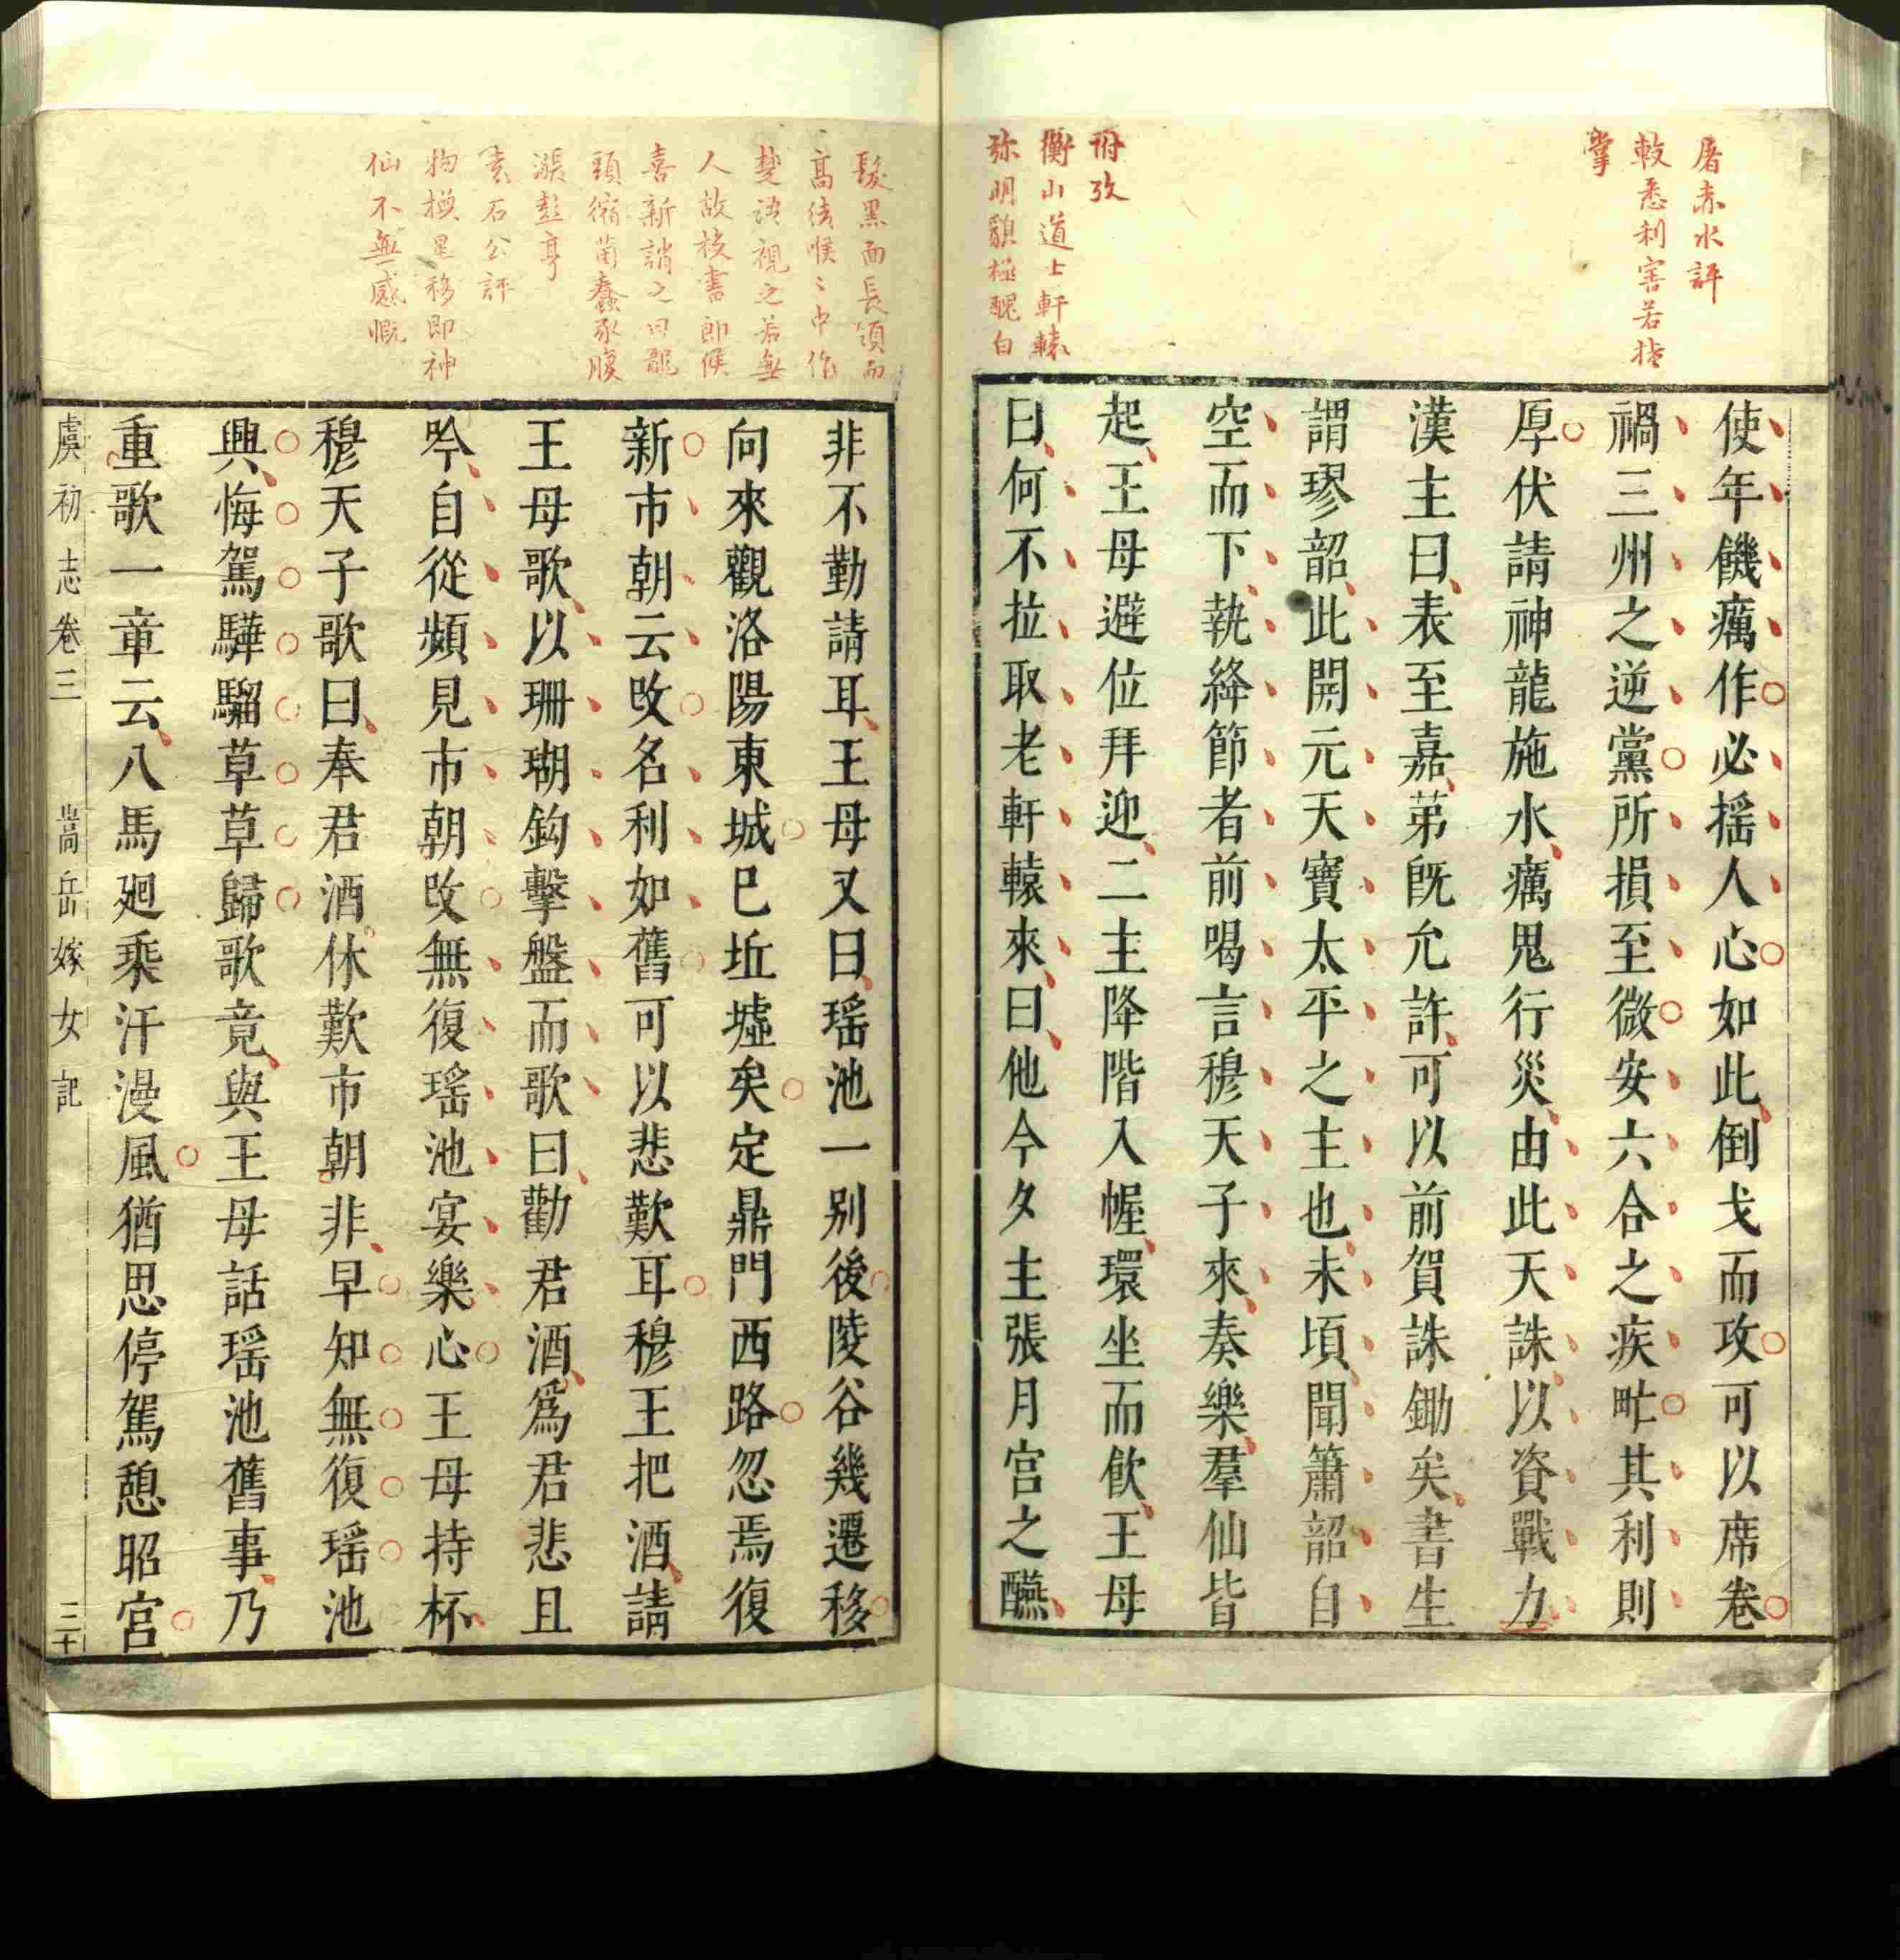 屠赤水評
較悉利害若指
掌
附攷
衡山道士軒轅
弥明貌極醜白
使年饑癘作必搖人心如此倒戈而攻可以席卷
禍三州之逆黨所損至微安六合之疾甿其利則
厚伏請神龍施水癘鬼行災由此天誅以資戰力
漢主曰表至嘉苐旣允許可以前賀誅鋤矣書生
謂璆韶此開元天寶太平之主也未頃聞簫韶自
空而下執絳節者前喝言穆天子來奏樂羣仙皆
起王母避位拜迎二主降階入幄環坐而飲王母
曰何不拉取老軒轅來曰他今夕主張月宮之醼
髮黑面長頸而
高結喉〻中作
楚語視之若無
人故校書郎侯
喜新誚之曰龍
頭縮菌蠢豕腹
漲彭亨
袁石公評
物換星移即神
仙不無感慨
非不勤請耳王母又曰瑤池一別後陵谷幾遷移
向來觀洛陽東城已坵墟矣定鼎門西路忽焉復
新市朝云改名利如舊可以悲歎耳穆王把酒請
王母歌以珊瑚鈎擊盤而歌曰勸君酒爲君悲且
吟自從頻見市朝改無復瑤池宴樂心王母持杯
穆天子歌曰奉君酒休歎市朝非早知無復瑤池
興悔駕驊騮草草歸歌竟與王母話瑤池舊事乃
重歌一章云八馬廻乘汗漫風猶思停駕憩昭宮
虞初志卷三 嵩岳嫁女記 三十